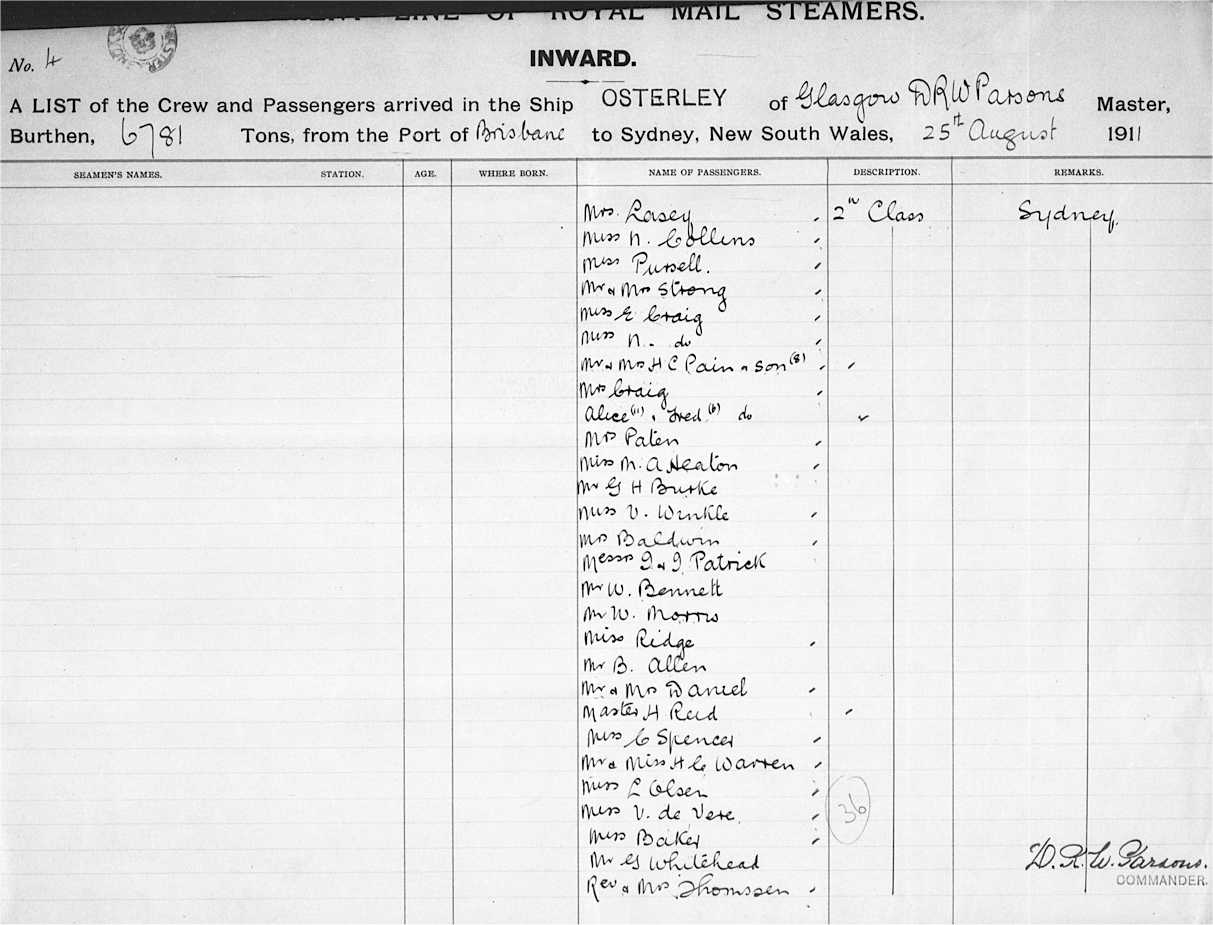 LINE OF ROYAL MAIL STEAMERS.
No. 4
INWARD.
A LIST of the Crew and Passengers arrived in the Ship OSTERLEY of Glasgow D R W Parsons Master,
Burthen, 6781 Tons, from the Port of Brisbane to Sydney, New South Wales, 25th August 1911
SEAMEN'S NAMES. STATION. AGE. WHERE BORN. NAME OF PASSENGERS. DESCRIPTION. REMARKS.
Mrs. Lasey 2n Class Sydney.
Miss N. Collins
Miss Pursell.
Mr & Mrs Strong
Miss E Craig
Miss N. do
Mr & Mrs H C Pain & son (8)
Mrs Craig
Alice (11) & Fred (6) do
Mrs Paten
Miss M. A Heaton
Mr G H Burke
Miss V. Winkle
Mrs Baldwin
Messrs J & J Patrick
Mr W. Bennett
Mr W. Morris
Miss Ridge
Mr B. Allen
Mr & Mrs Daniel
Master H Reid
Miss C Spencer
Mr & Miss H C Warren
Miss L Olsen
Miss V. de Vere.
36
Miss Baker
Mr G Whitehead
D. R. W. Parsons.
COMMANDER.
Rev & Mrs Thomssen